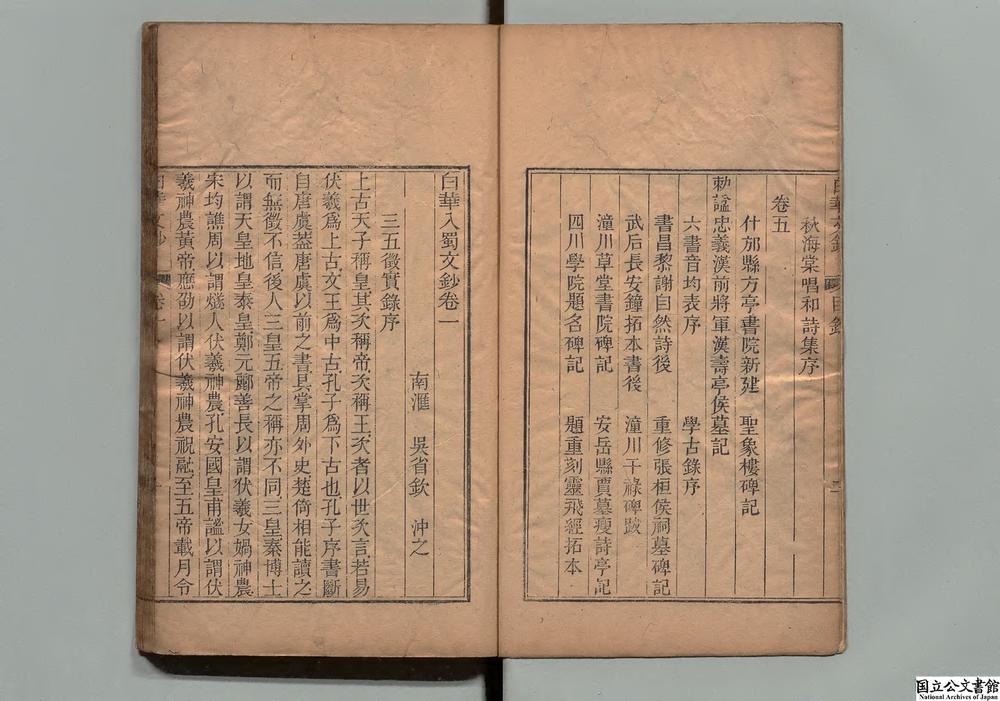 秋海棠唱和詩集序
卷五
什邡縣方亭書院新建　聖象樓碑記
勅諡忠義漢前將軍漢壽亭侯墓記
六書音均表序　學古錄序
書昌黎謝自然詩後　重修張桓侯祠墓碑記
武后長安鐘拓本書後　潼川干祿碑跋
潼川草堂書院碑記　安岳縣賈墓瘦詩亭記
四川學院題名碑記　題重刻靈飛經拓本
白華入蜀文鈔卷一
南滙　吳省欽　沖之
三五徵實錄序
上古天子稱皇其次稱帝次稱王次者以世次言若易
伏羲爲上古文王爲中古孔子爲下古也孔子序書斷
自唐虞葢唐虞以前之書具掌周外史楚倚相能讀之
而無徵不信後人三皇五帝之稱亦不同三皇秦博士
以謂天皇地皇泰皇鄭元酈善長以謂伏羲女媧神農
宋均譙周以謂燧人伏羲神農孔安國皇甫謐以謂伏
羲神農黃帝應劭以謂伏羲神農祝融至五帝載月令
国立公文書館
National Archives of Japan